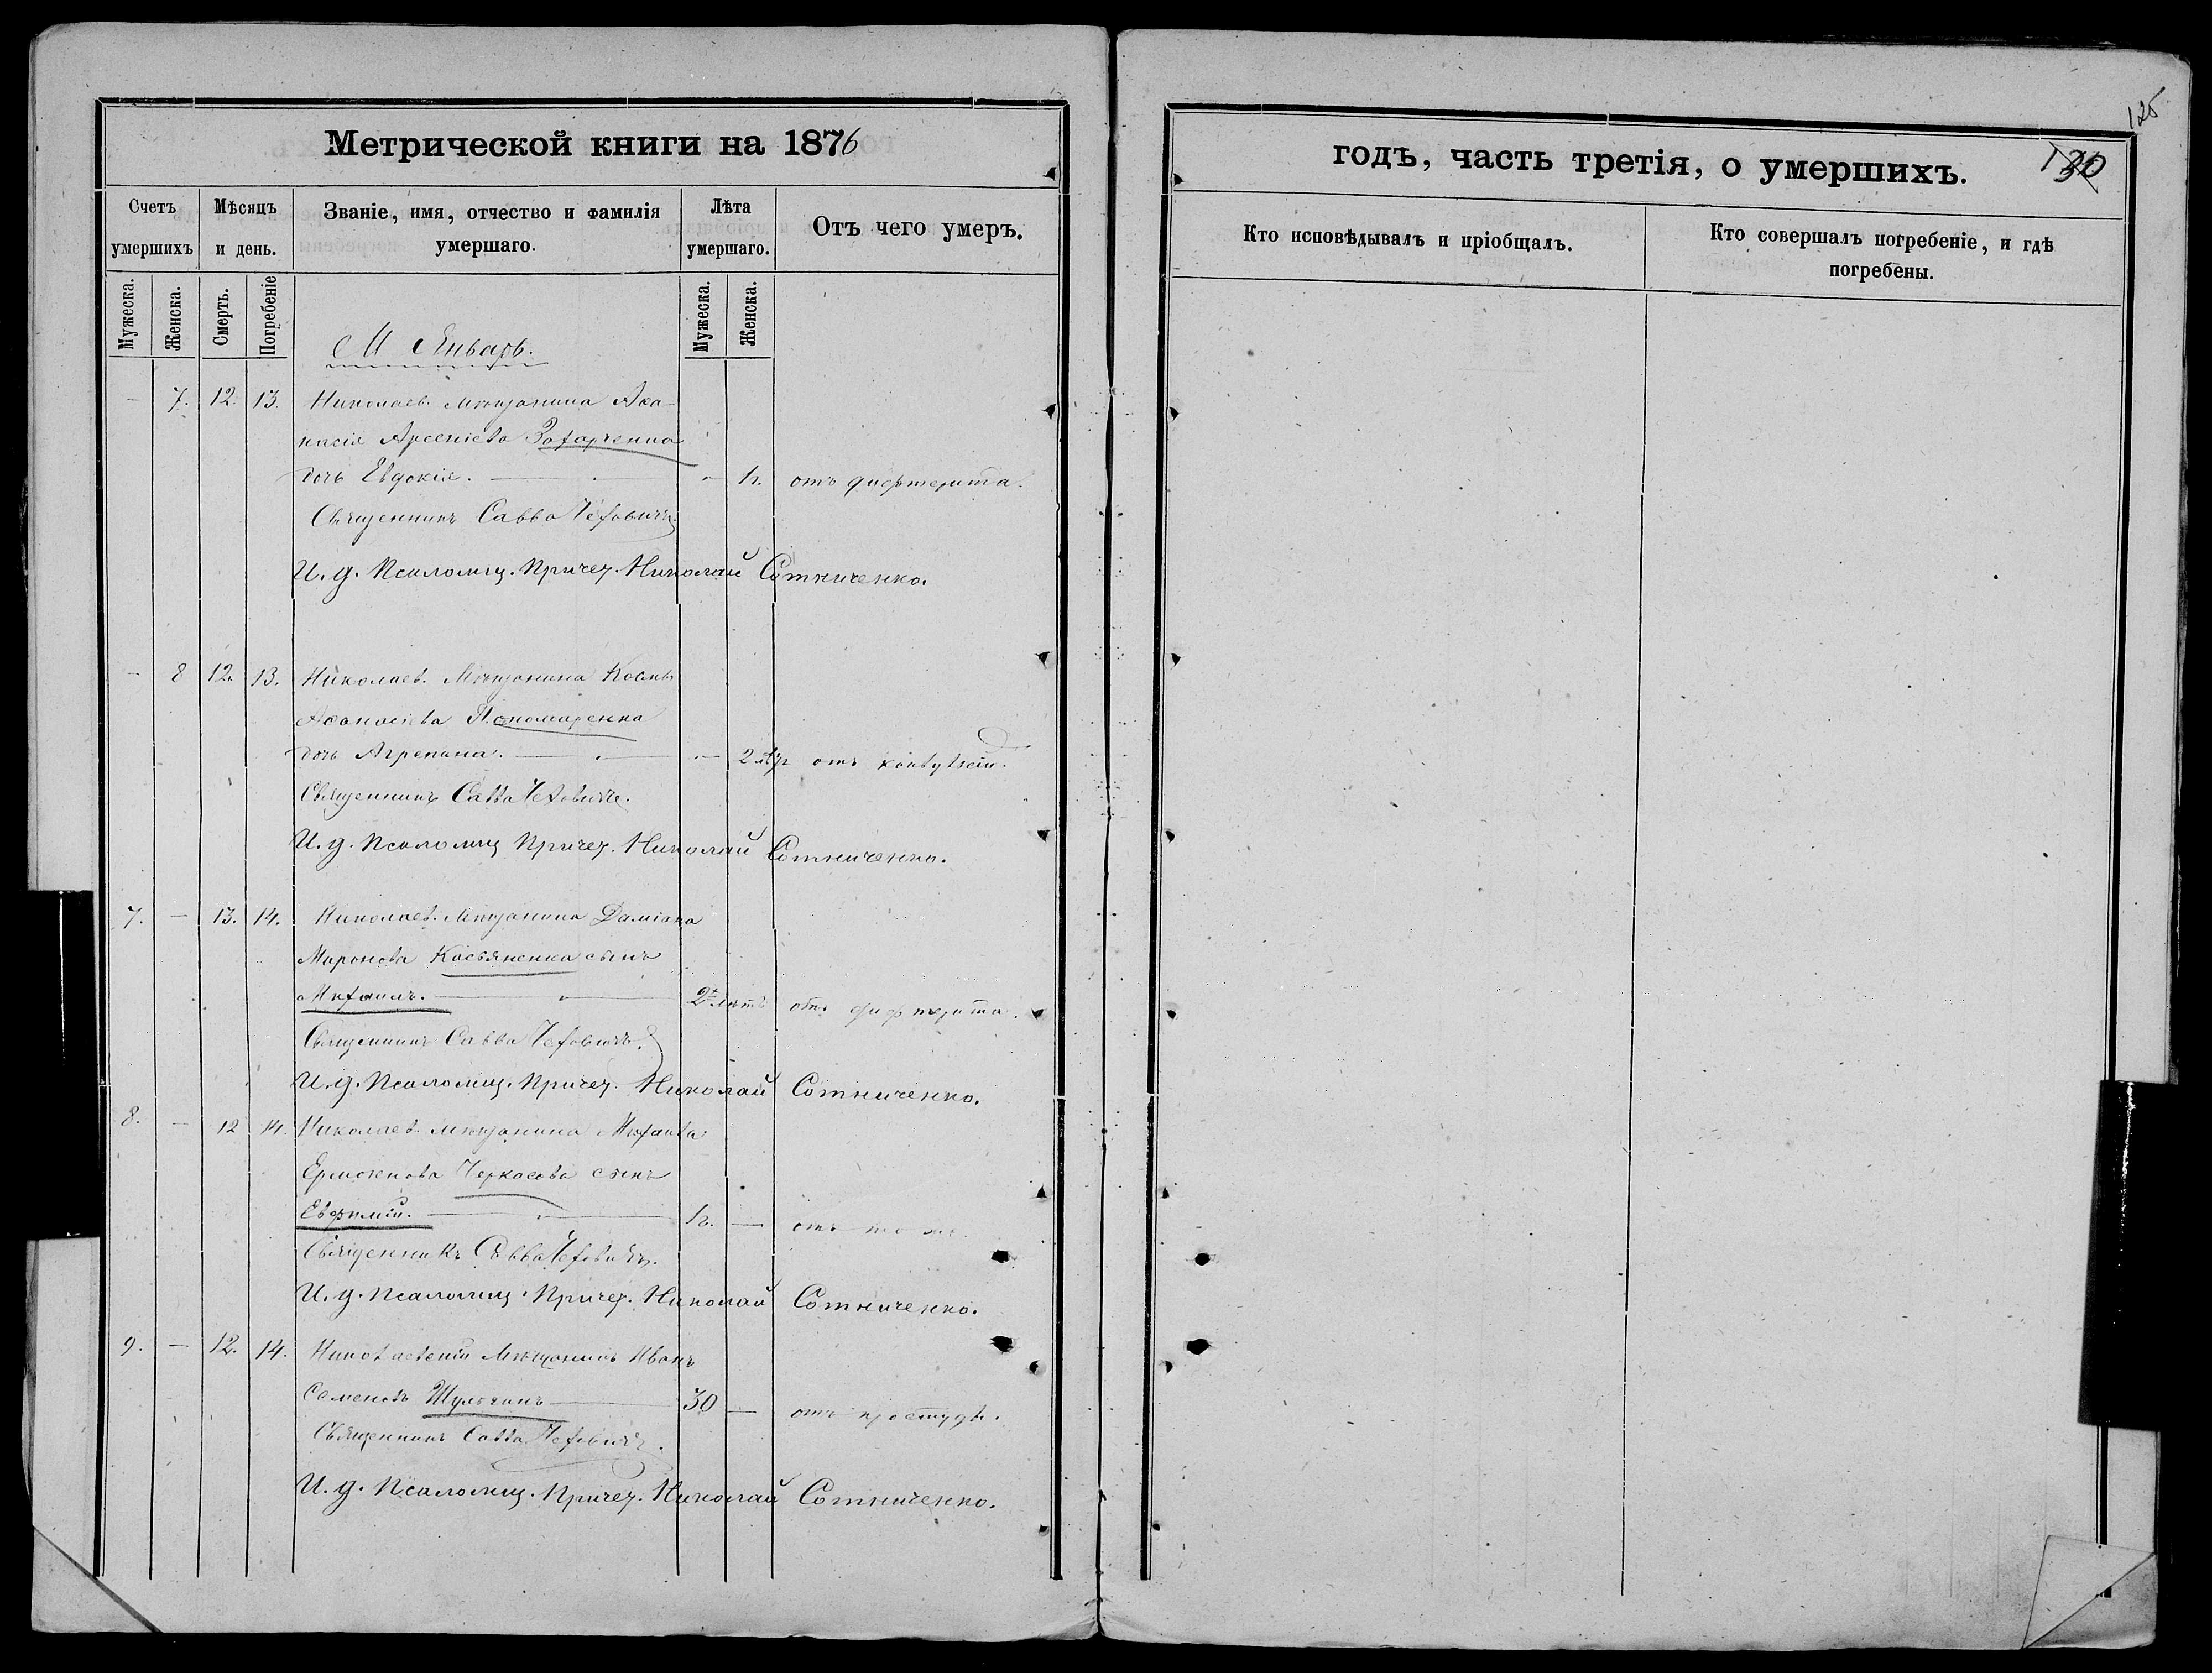 Метрической книги на 1876
Счетъ умершихъ
Мѣсяцъ и день.
Званіе, имя, отчество и фамилія умершаго.
Лѣта умершаго.
Отъ чего умеръ.
Мужеска. Женска. Смерть. Погребеніе Мужеска. Женска.
М Январь.
— 7. 12. 13. Николаев. мѣщанина Аѳа-
насія Арсеніева Захарченка
дочь Евдокія. — „ 1 г. отъ дифтерита.
Священникъ Савва Чехович
И. д. Псаломщ. Причет. Николай Сотниченко.
— 8 12. 13. Николаев. Мѣщанина Космы
Аѳанасіева Пономаренка
дочь Агрепина. — — 2 отъ
Священникъ Савва Чехович.
И. д. Псаломщ Причет. Николай Сотниченко.
7. — 13. 14. Николаев. Мѣщанина Даміана
Миронова Касьяненка сынъ
Михаилъ. — 2 лѣтъ отъ дифтерита.
Священникъ Савва Чехович.
И. д. Псаломщ. Причет. Николай Сотниченко.
8. — 12 14. Николаев. мѣщанина
Ермогенова Черкасова сынъ
Евфимій. — 1 г. — отъ того же.
Священникъ Савва Чехович.
И. д. Псаломщ. Причет. Николай Сотниченко.
9. — 12. 14. Николаевскій Мѣщанинъ Иванъ
Семеновъ Шульгинъ — 30 — отъ простуды.
Священникъ Савва Чехович.
И. д. Псаломщ. Причет. Николай Сотниченко.
125
годъ, часть третія, о умершихъ. 130
Кто исповѣдывалъ и пріобщалъ.
Кто совершалъ погребеніе, и гдѣ
погребены.